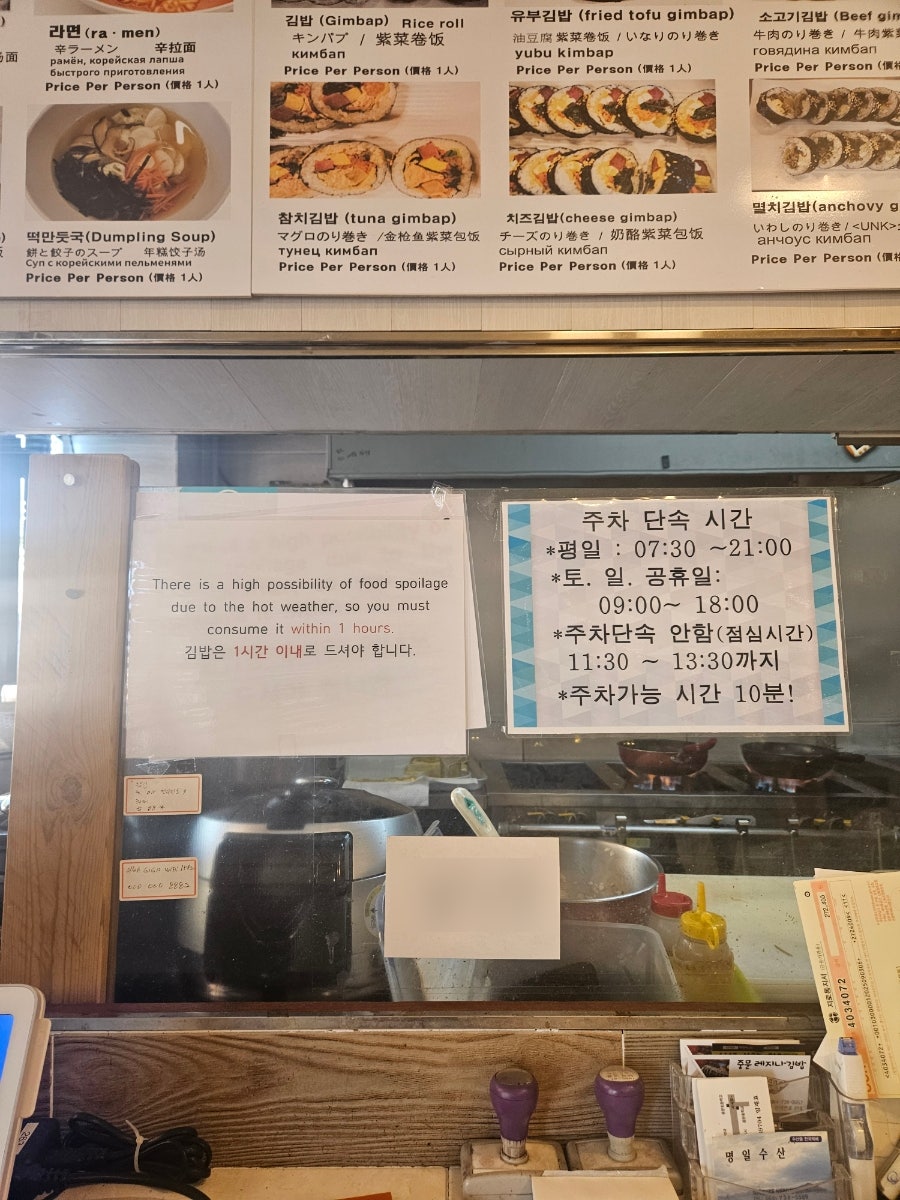 라면 (ra·men)
辛ラーメン 辛拉面
рамён, корейская лапша
быстрого приготовления
Price Per Person (價格 1人)
김밥 (Gimbap) Rice roll
キンパプ / 紫菜卷饭
кимбап
Price Per Person (價格 1人)
유부김밥 (fried tofu gimbap)
油豆腐 紫菜卷饭 / いなりのり巻き
yubu kimbap
Price Per Person (價格 1人)
소고기김밥 (Beef gim
牛肉のり巻き / 牛肉紫
говядина кимбап
Price Per Person (價格
떡만둣국(Dumpling Soup)
餅と餃子のスープ 年糕饺子汤
Суп с корейскими пельменями
Price Per Person (價格 1人)
참치김밥 (tuna gimbap)
マグロのり巻き /金枪鱼紫菜包饭
тунец кимбап
Price Per Person (價格 1人)
치즈김밥(cheese gimbap)
チーズのり巻き / 奶酪紫菜包饭
сырный кимбап
Price Per Person (價格 1人)
멸치김밥(anchovy g
いわしのり巻き/<UNK>
анчоус кимбап
Price Per Person (價格
There is a high possibility of food spoilage
due to the hot weather, so you must
consume it within 1 hours.
김밥은 1시간 이내로 드셔야 합니다.
주차 단속 시간
*평일 : 07:30 ~21:00
*토. 일. 공휴일:
09:00~ 18:00
*주차단속 안함(점심시간)
11:30 ~ 13:30까지
*주차가능 시간 10분!
지로통지서
4034072
중문 레지나김밥
명일수산